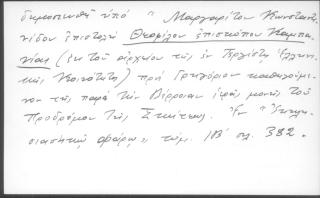 δημοσιευθεῖσα ὑπὸ "Μαργαρίτου Κωνσταντι-
νίδου ἐπιστολὴ Θεοφίλου ἐπισκόπου Καμπα-
νίας (ἐκ τοῦ ἀρχείου τῆς ἐν Τεργέστῃ Ἑλλην-
ικῆς Κοινότητος) πρὸς Γρηγόριον καθηγούμε-
νον τῆς παρὰ τὴν Βέρροιαν ἱερᾶς μονῆς τοῦ
Προδρόμου τῆς Σκήτεως. Ἐν "Ἐκκλη-
σιαστικῷ Φάρῳ", τόμ. ΙΒ' σελ. 382.